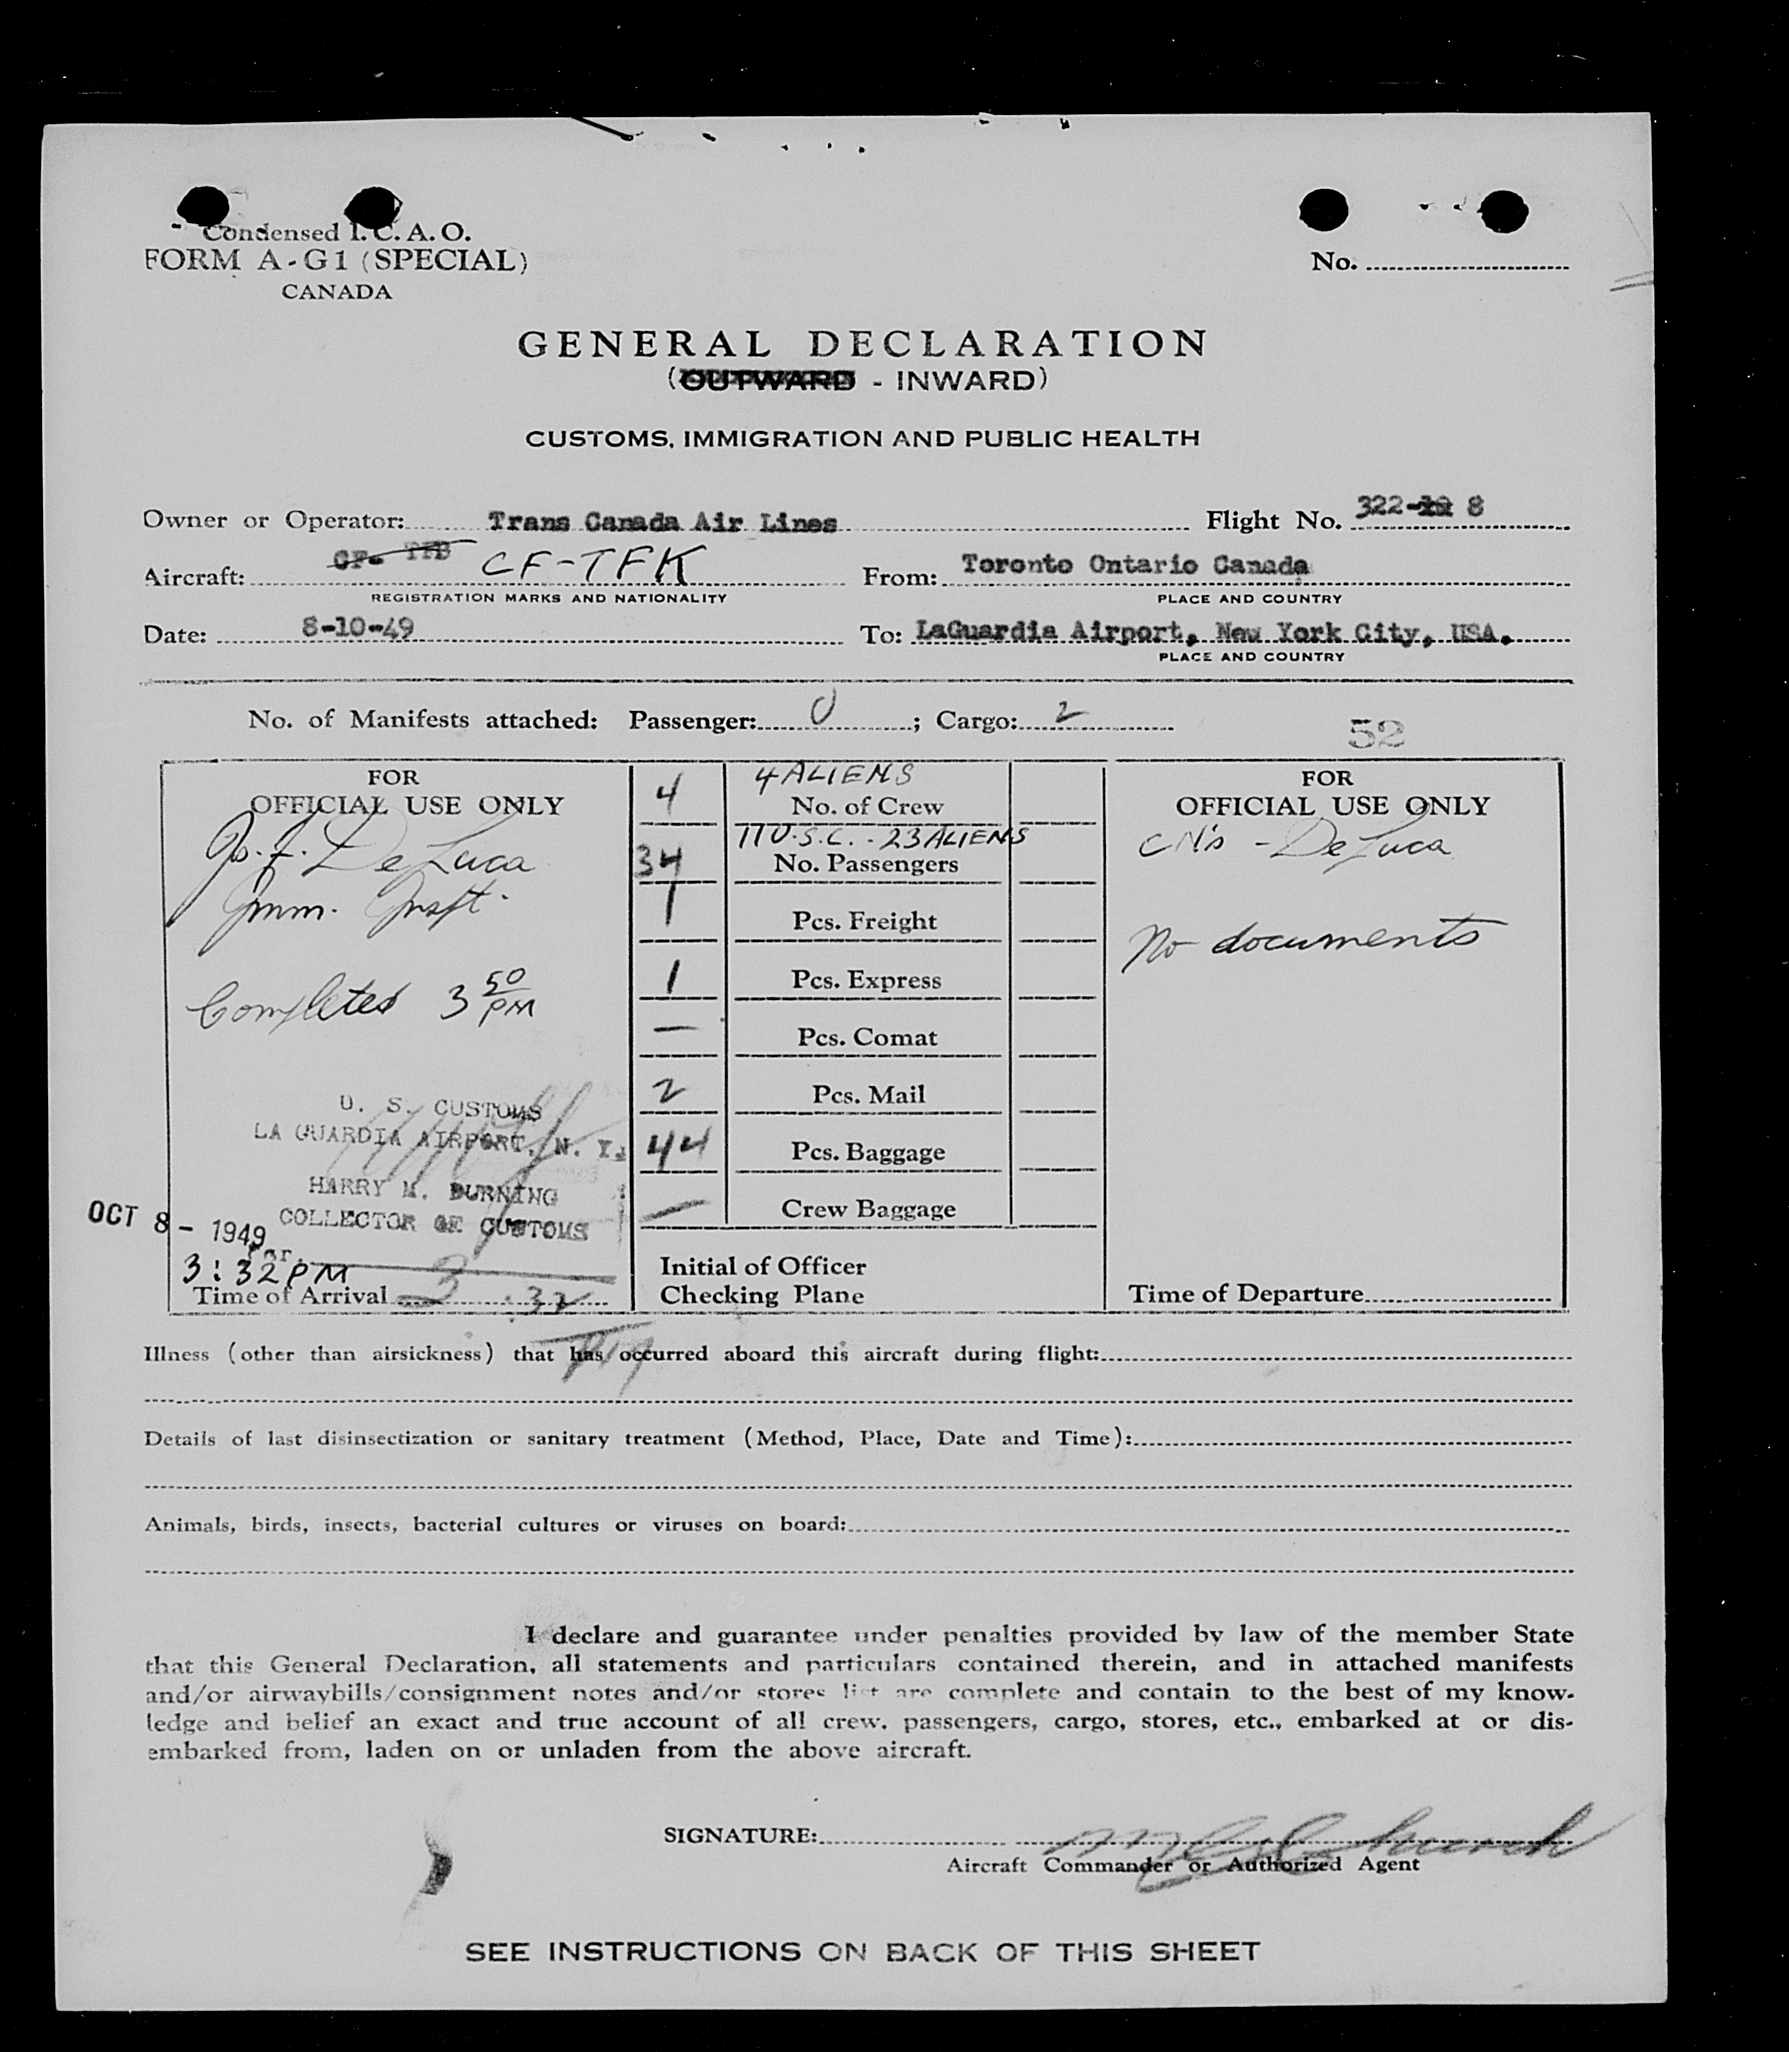 Condensed I.C.A.O.
FORM A-G1 (SPECIAL)
CANADA
No.
GENERAL DECLARATION
(OUTWARD - INWARD)
CUSTOMS, IMMIGRATION AND PUBLIC HEALTH
Owner or Operator: Trans Canada Air Lines Flight No. 322-10 8
Aircraft: CF- TFB CF-TFK From: Toronto Ontario Canada
REGISTRATION MARKS AND NATIONALITY PLACE AND COUNTRY
Date: 8-10-49 To: LaGuardia Airport, New York City, USA.
PLACE AND COUNTRY
No. of Manifests attached: Passenger: 0 ; Cargo: 2
52
FOR
OFFICIAL USE ONLY
De Luca
Imm. Inspt.
Completed 3 50 PM
U. S. CUSTOMS
LA GUARDIA AIRPORT, N. Y.
HARRY M. DURNING
COLLECTOR OF CUSTOMS
OCT 8 - 1949
3:32 PM
Time of Arrival 3:32
4 4 ALIENS
No. of Crew
11 U.S.C. - 23 ALIENS
34 No. Passengers
1 Pcs. Freight
1 Pcs. Express
— Pcs. Comat
2 Pcs. Mail
44 Pcs. Baggage
— Crew Baggage
Initial of Officer
Checking Plane
FOR
OFFICIAL USE ONLY
CN's - De Luca
No documents
Time of Departure
Illness (other than airsickness) that has occurred aboard this aircraft during flight:
Details of last disinsectization or sanitary treatment (Method, Place, Date and Time):
Animals, birds, insects, bacterial cultures or viruses on board:
I declare and guarantee under penalties provided by law of the member State
that this General Declaration, all statements and particulars contained therein, and in attached manifests
and/or airwaybills/consignment notes and/or stores list are complete and contain to the best of my know-
ledge and belief an exact and true account of all crew, passengers, cargo, stores, etc., embarked at or dis-
embarked from, laden on or unladen from the above aircraft.
SIGNATURE:
Aircraft Commander or Authorized Agent
SEE INSTRUCTIONS ON BACK OF THIS SHEET